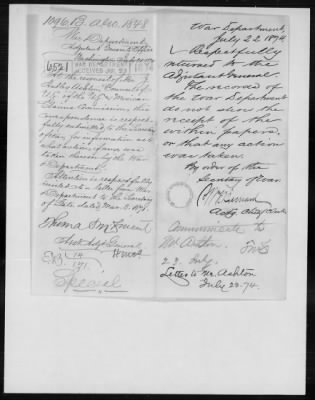 1096. B. A.G.O. 1848
War Department,
Adjutant General's Office
Washington, July
WAR DEPARTMENT
RECEIVED JUL 22
4521
At the request of Mr. J.
Hubley Ashton, Counsel of
U.S. before U.S. & Mexican
Claims Commission, this
correspondence is respect-
fully submitted to the Secretary
of War, for information as to
what action, if any, was
taken thereon by the War
Department.
Attention is respectfully
invited to a letter from War
Department to the Secretary
of State dated Mar. 2. 1871.
Thomas M. Vincent
Asst. Adjt. General
E.B.
14
171.
Special
War Department,
July 22 1874
Respectfully
returned to the
Adjutant General.
The records of
the War Department
do not show the
receipt of the
within papers,
or that any action
was taken.
By order of the
Secretary of War.
Actg. Chief Clerk
Communicate to
Mr. Ashton.
23 July
Letter to Mr. Ashton
July 23. 74.